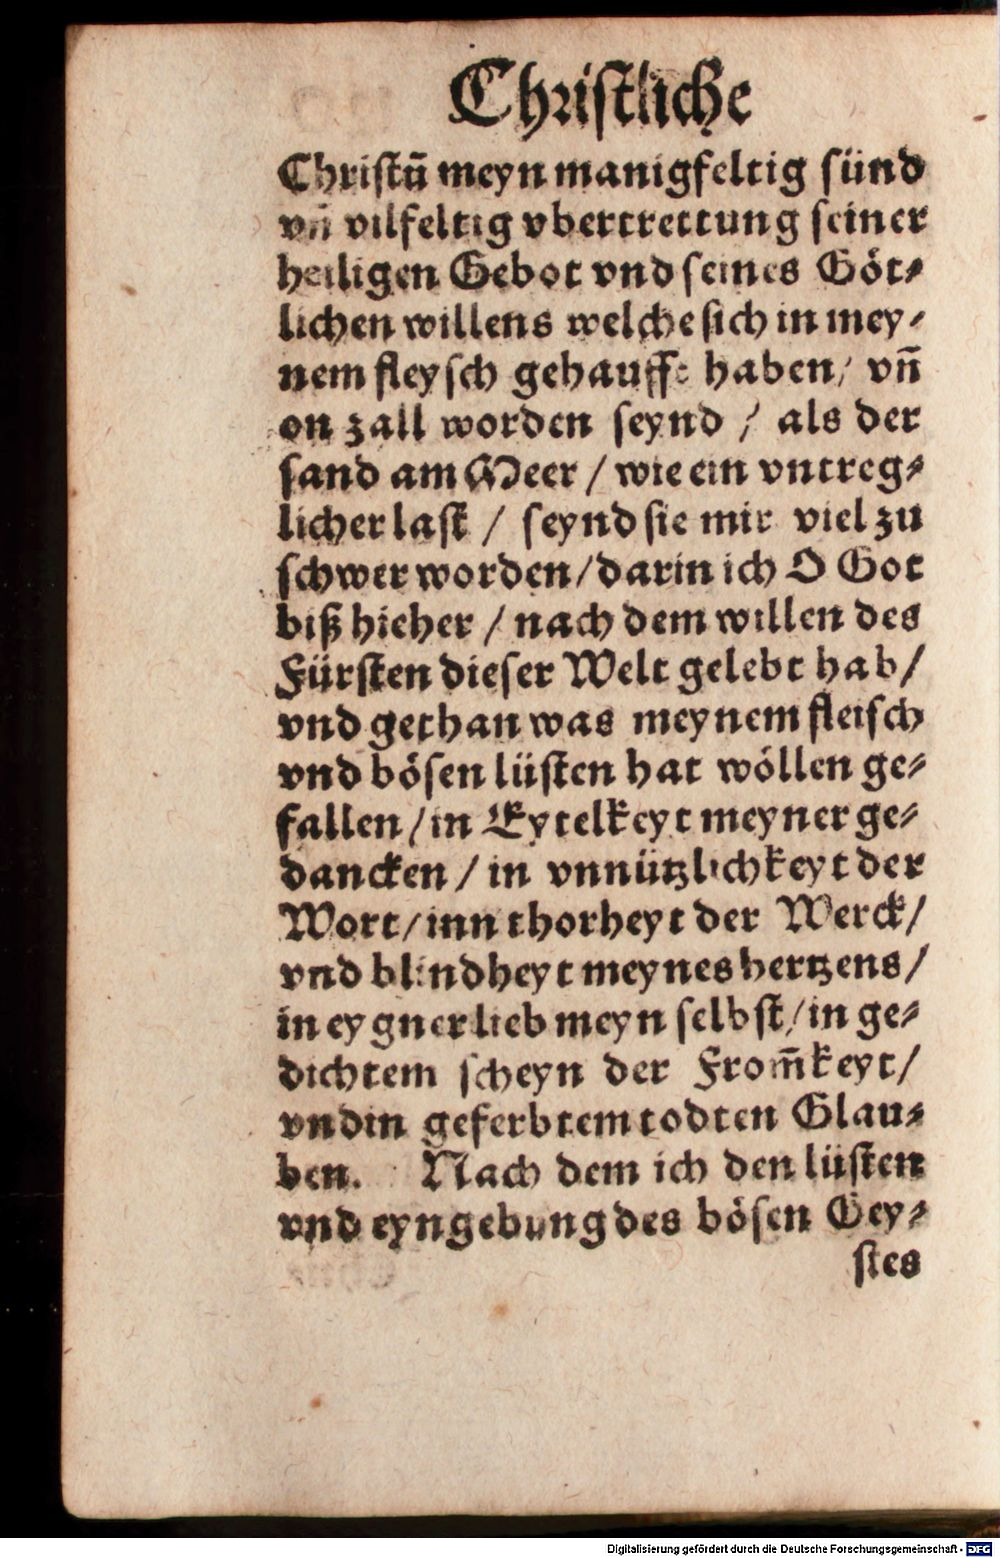 Christliche
Christū meyn manigfeltig sünd
vn̄ vilfeltig vbertrettung seiner
heiligen Gebot vnd seines Göt⸗
lichen willens welche sich in mey⸗
nem fleysch gehaufft haben / vn̄
on zall worden seynd / als der
sand am Meer / wie ein vntreg⸗
licher last / seynd sie mir viel zu
schwer worden / darin ich O Got
biß hieher / nach dem willen des
Fürsten dieser Welt gelebt hab /
vnd gethan was meynem fleisch
vnd bösen lüsten hat wöllen ge⸗
fallen / in Eytelkeyt meyner ge⸗
dancken / in vnnützlichkeyt der
Wort / inn thorheyt der Werck /
vnd blindheyt meynes hertzens /
in eygner lieb meyn selbst / in ge⸗
dichtem scheyn der From̄keyt /
vnd in geferbtem todten Glau⸗
ben. Nach dem ich den lüsten
vnd eyngebung des bösen Gey⸗
stes
Digitalisierung gefördert durch die Deutsche Forschungsgemeinschaft - DFG